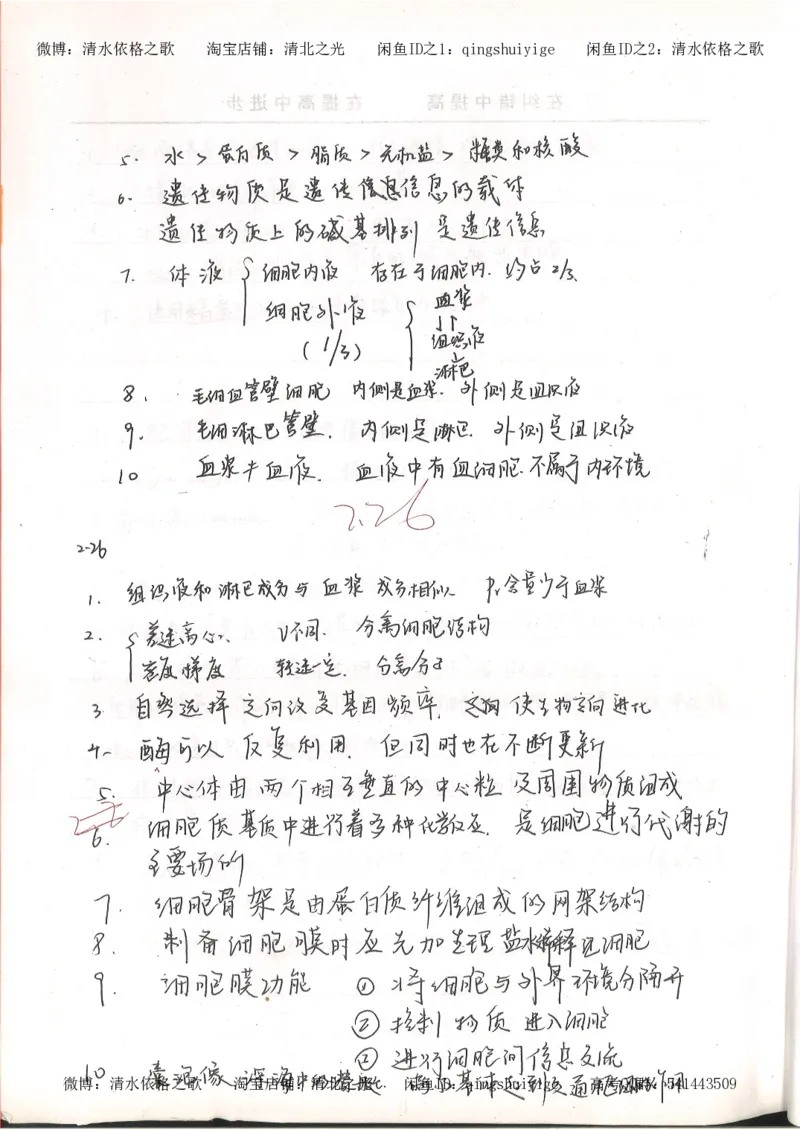 微博：清水依格之歌 淘宝店铺：清北之光 闲鱼ID之1：qingshuiyige 闲鱼ID之2：清水依格之歌
在纠错中提高 在提高中进步
5. 水 > 蛋白质 > 脂质 > 无机盐 > 糖类和核酸
6. 遗传物质是遗传信息信息的载体
遗传物质上的碱基排列 是遗传信息
7. 体液 { 细胞内液 存在于细胞内. 约占2/3
细胞外液 { 血浆
(1/3) 组织液
淋巴
8. 毛细血管壁细胞 内侧是血浆. 外侧是组织液
9. 毛细淋巴管壁. 内侧是淋巴. 外侧是组织液
10 血浆≠血液. 血液中有血细胞.不属于内环境
2.26
2-26
1. 组织液和淋巴成分与血浆 成分相似 Pr含量少于血浆
2. { 差速离心. V不同. 分离细胞结构
密度梯度 转速一定. 分离分子
3 自然选择 定向改变基因频率, 使生物定向进化
4. 酶可以反复利用. 但同时也在不断更新
5. 中心体由两个相互垂直的中心粒及周围物质组成
6. 细胞质基质中进行着多种化学反应. 是细胞进行代谢的
主要场所
7. 细胞骨架是由蛋白质纤维组成的网架结构
8. 制备细胞膜时应先加生理盐水稀释红细胞
9. 细胞膜功能 ① 将细胞与外界环境分隔开
② 控制物质进入细胞
③ 进行细胞间信息交流
10 囊泡像深海中的潜艇.
微博：清水依格之歌 淘宝店铺：清北之光 闲鱼ID：qingshuiyige 541443509